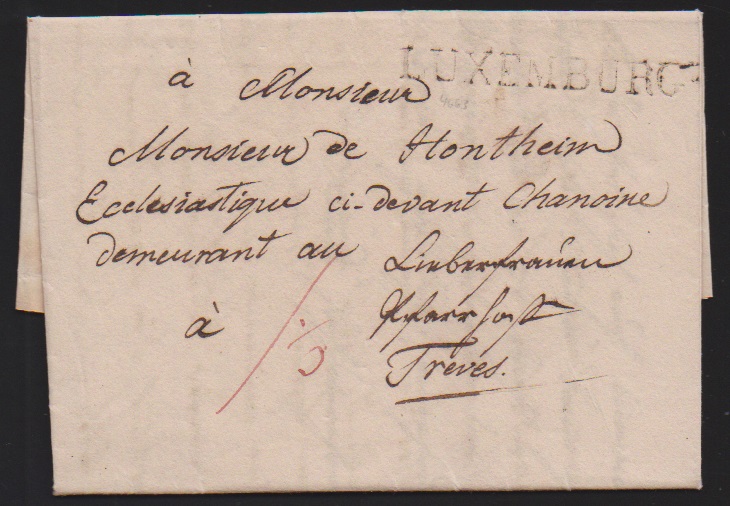 LUXEMBURG
à Monsieur
Monsieur de Hontheim
Ecclesiastique ci-devant Chanoine
demeurant au Lieberfrauen
à Pfarrhoff
Treves.